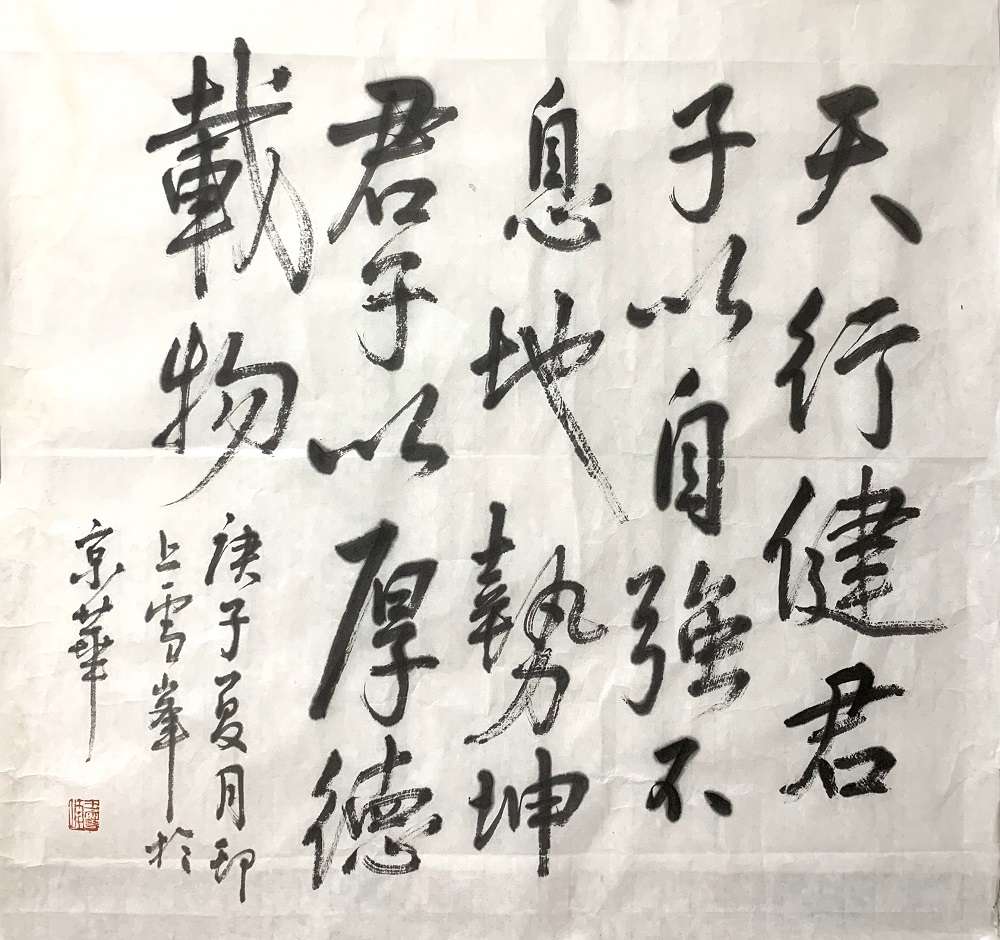 天行健君
子以自強不
息地勢坤
君子以厚德
載物
庚子夏月印
上雪峯於
京華